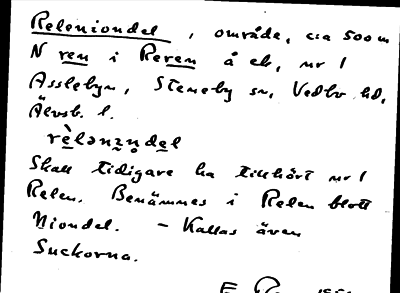 Releniondel, område, c:a 500 m
N ren i Reren å ek, nr 1
Asslebyn, Steneby sn, Vedbo hd,
Älvsb. l.
Skall tidigare ha tillhört nr 1
Relen. Benämnes i Relen blott
Niondel. – Kallas även
Suckorna.